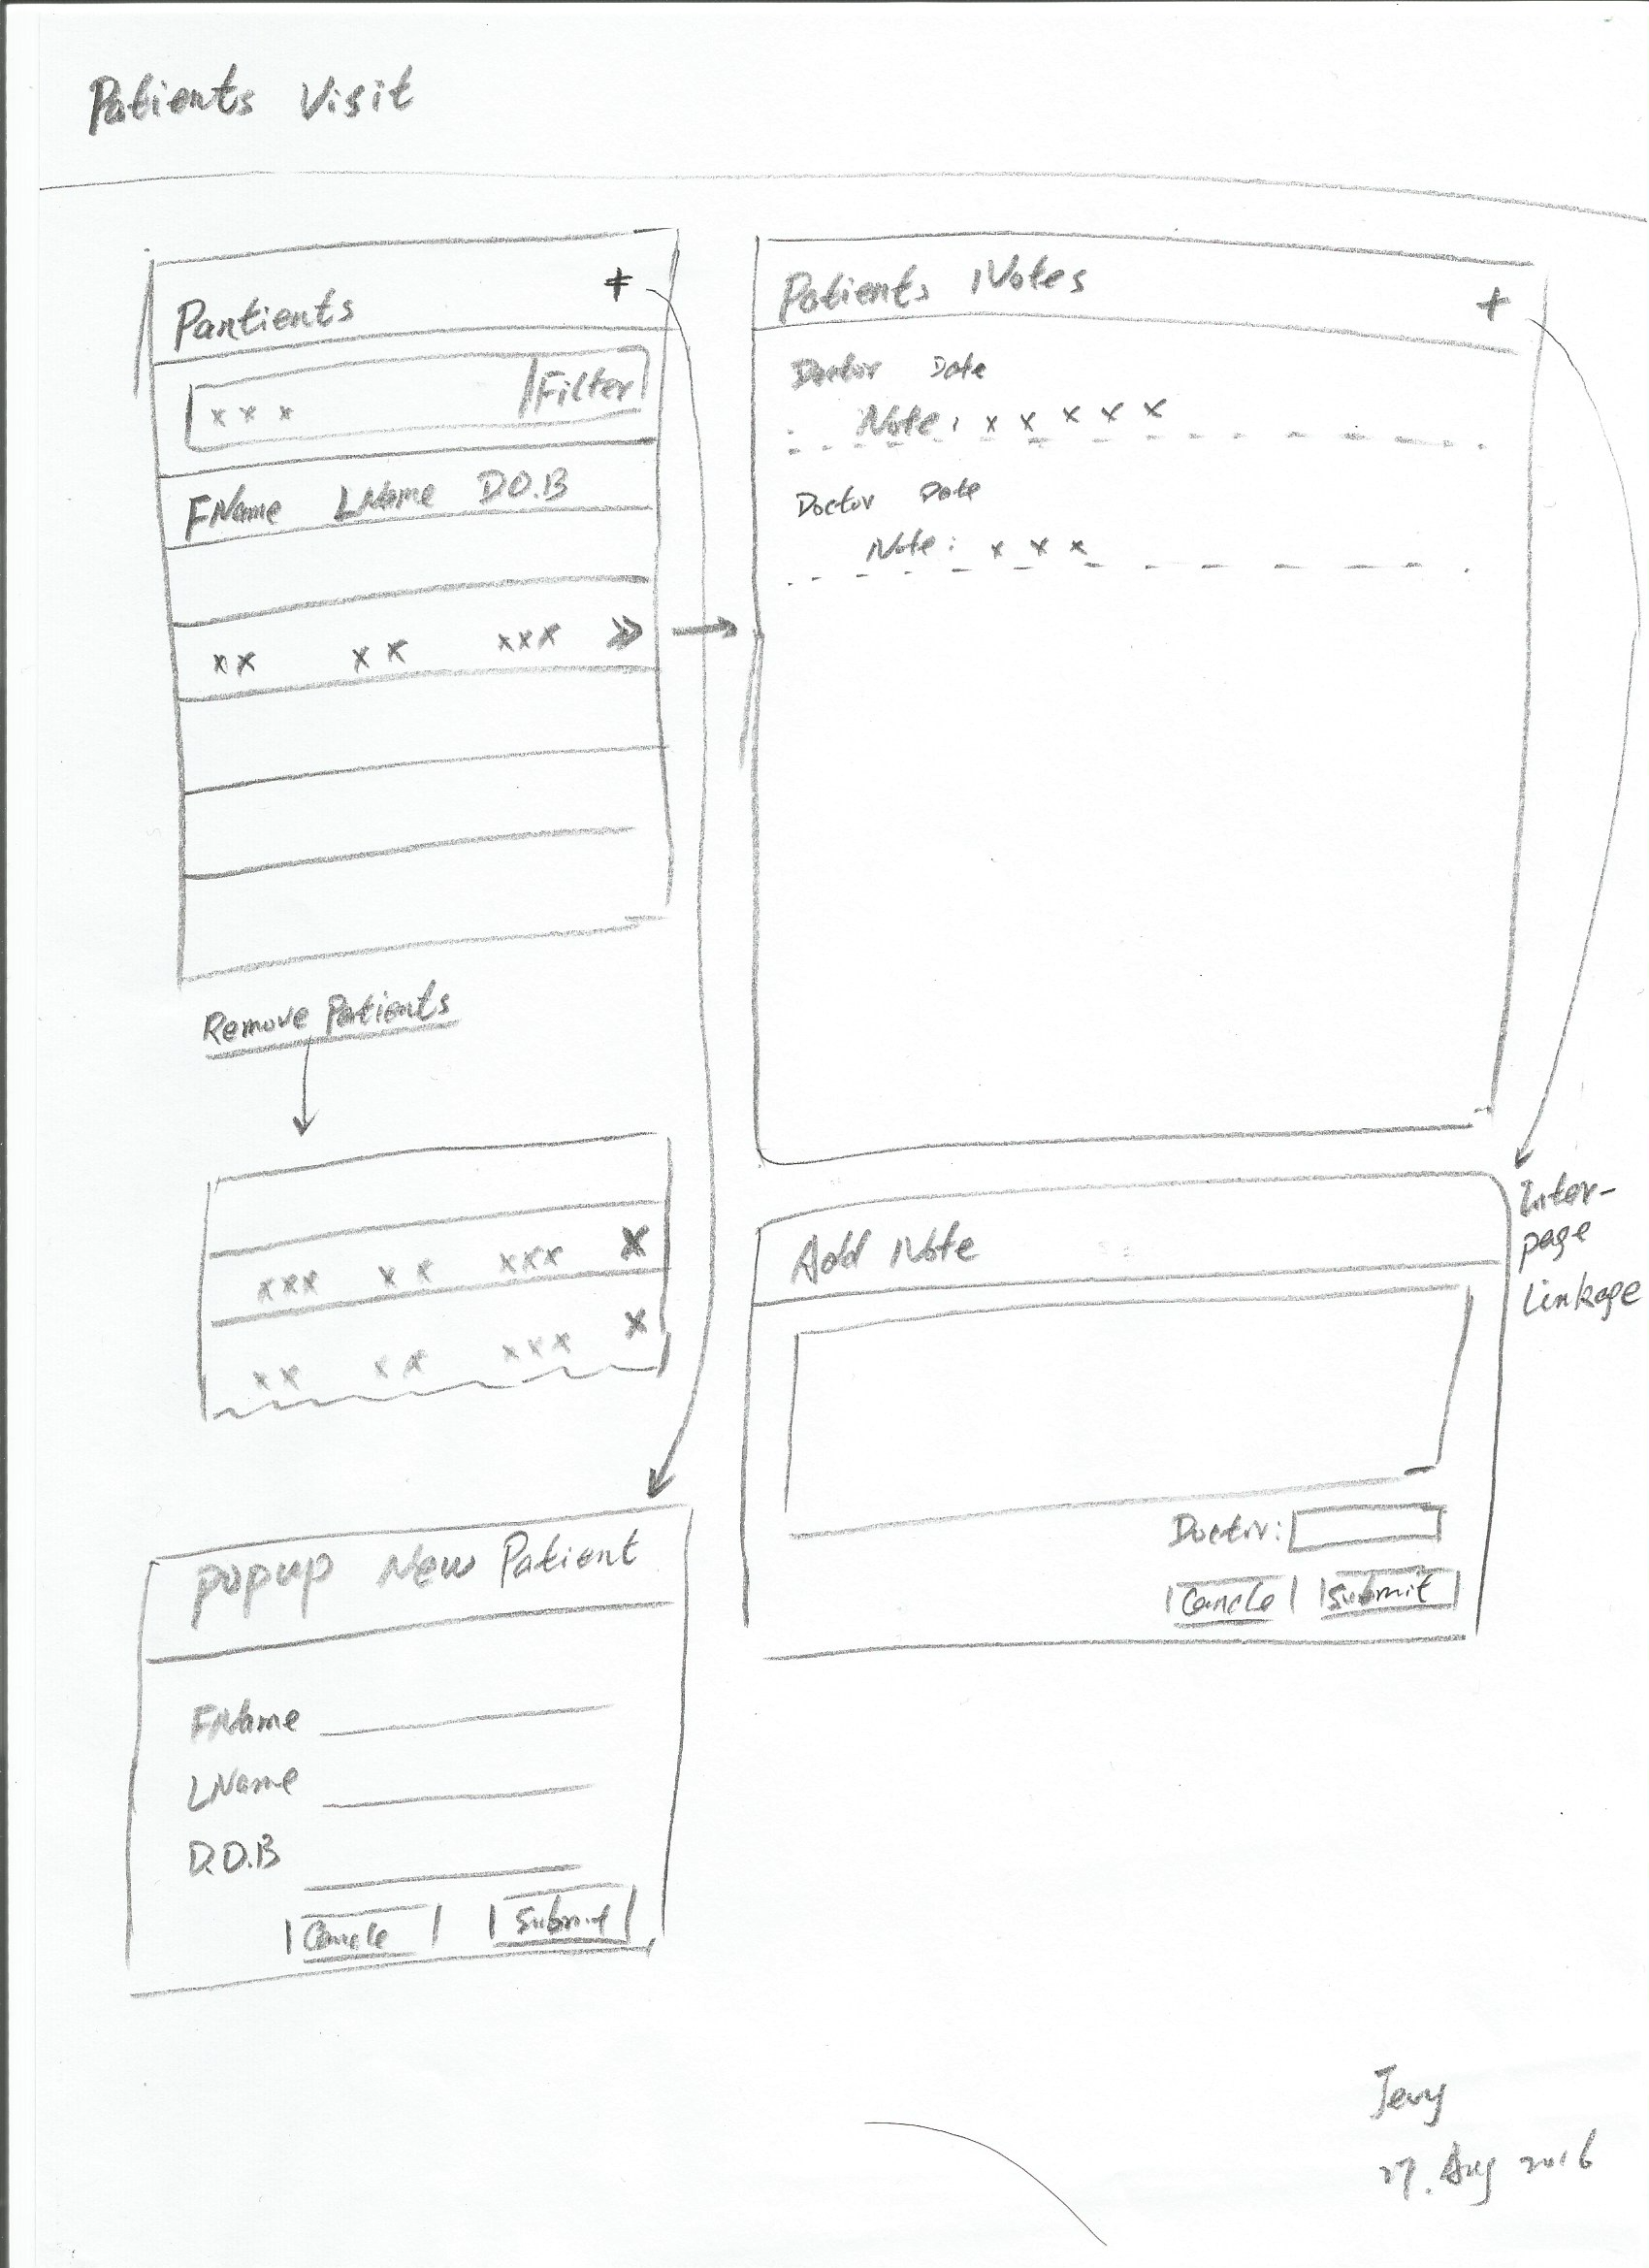 Patients Visit
Pantients +
x x x Filter
FName LName D.O.B
xx xx xxx >>
Remove Patients
xxx xx xxx x
xx xx xxx x
popup New Patient
FName
LName
D.O.B
Cancle Submit
Patients Notes +
Doctor Date
Note: x x x x x
Doctor Date
Note: x x x
Inter-
page
linkage
Add Note
Doctor:
Cancle Submit
27. Aug 2016